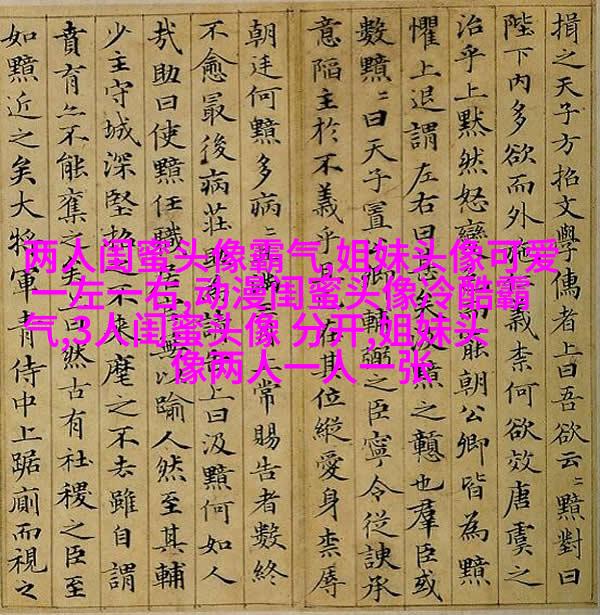 揖之天子方招文學儒者上曰吾欲云〻黯對曰
陛下內多欲而外施義柰何欲效唐虞之
治乎上黙然怒變而罷朝公卿皆為黯
懼上退謂左右曰甚矣黯之戇也羣臣或
數黯〻曰天子置卿輔弼之臣寧令從諛承
意陷主於不義乎且在其位縱愛身柰辱
朝廷何黯多病〻滿三上常賜告者數終
不愈最後病莊助請告上曰汲黯何如人
㢤助曰使黯任職居無以踰人然至其輔
少主守城深堅招之不來麾之不去雖自謂
賁育亦不能奪之矣曰然古有社稷之臣至
如黯近之矣大將軍青侍中上踞廁而視之
两人闺蜜头像霸气,姐妹头像可爱
一左一右,动漫闺蜜头像冷酷霸
气,3人闺蜜头像 分开,姐妹头
像两人一人一张